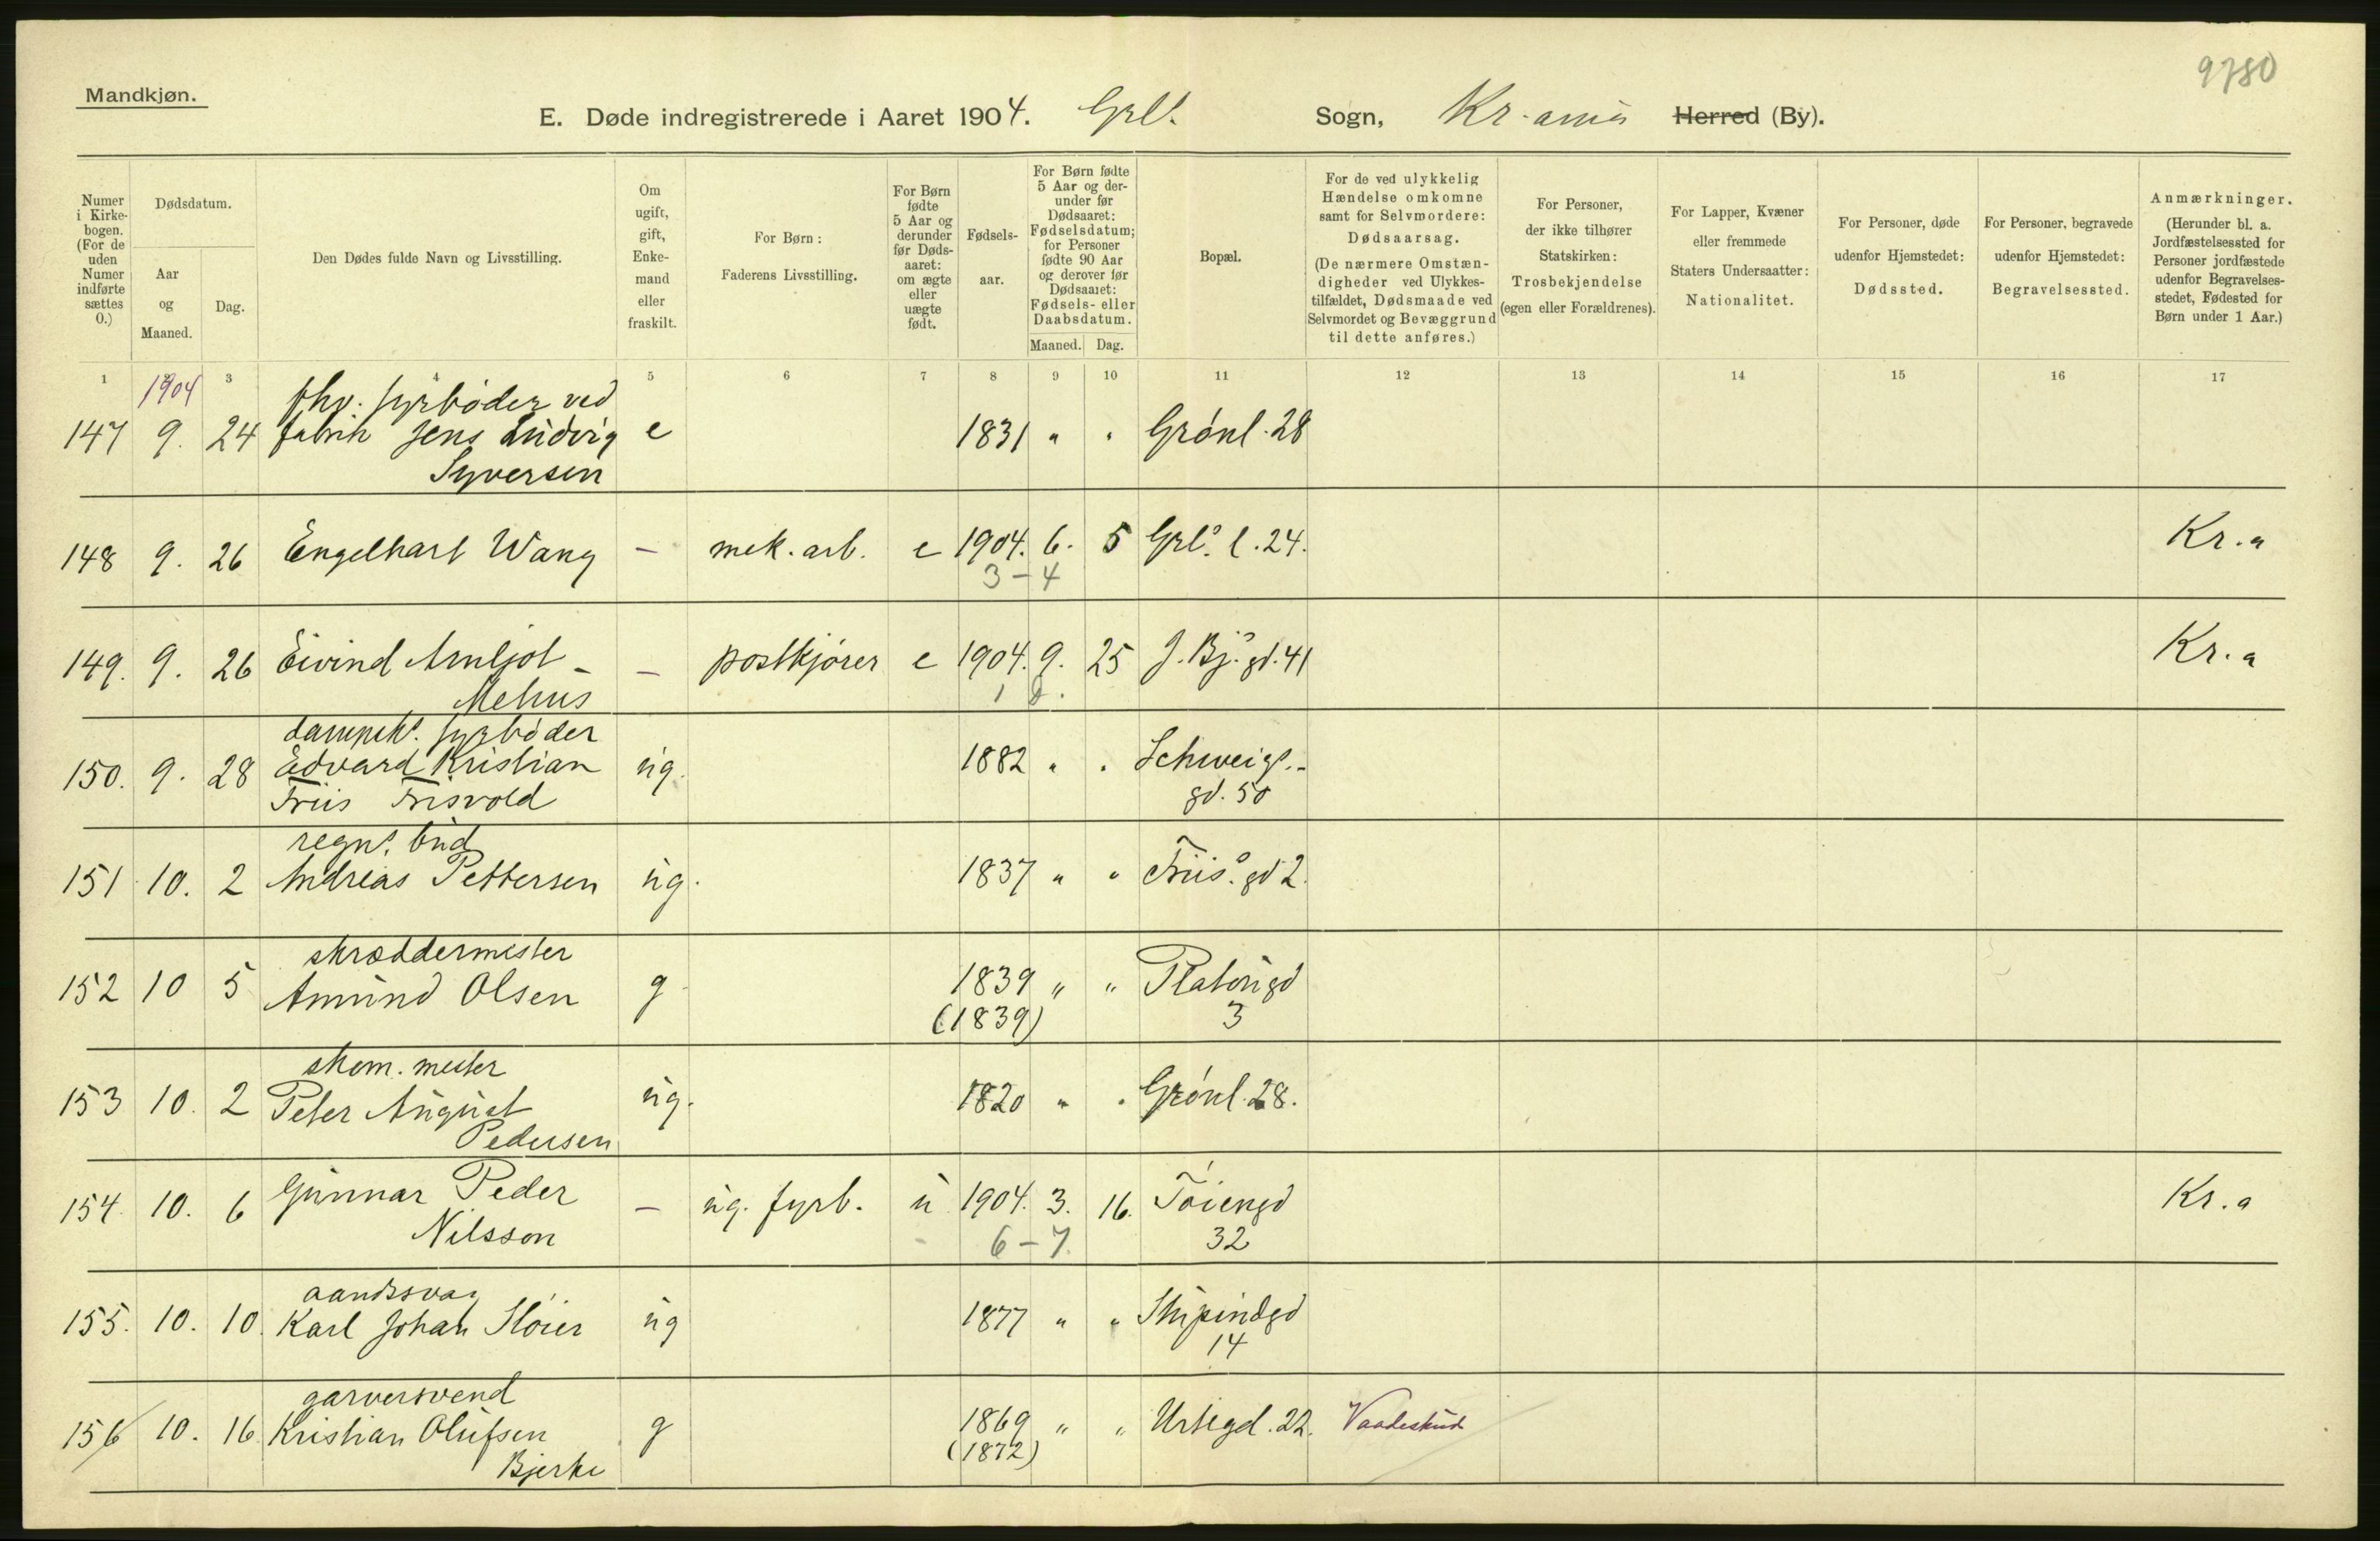 9780
Mandkjøn.
E. Døde indregistrerede i Aaret 1904. Grl. Sogn, Kr.ania Herred (By).
Numer i Kirkebogen. (For de uden Numer indførte sættes 0.)
Dødsdatum.
Aar og Maaned.
Dag.
Den Dødes fulde Navn og Livsstilling.
Om ugift, gift, Enkemand eller fraskilt.
For Børn: Faderens Livsstilling.
For Børn fødte 5 Aar og derunder før Dødsaaret: om ægte eller uægte født.
Fødselsaar.
For Børn fødte 5 Aar og derunder før Dødsaaret: Fødselsdatum; for Personer fødte 90 Aar og derover før Dødsaaret: Fødsels- eller Daabsdatum.
Maaned. Dag.
Bopæl.
For de ved ulykkelig Hændelse omkomne samt for Selvmordere: Dødsaarsag. (De nærmere Omstændigheder ved Ulykkestilfældet, Dødsmaade ved Selvmordet og Bevæggrund til dette anføres.)
For Personer, der ikke tilhører Statskirken: Trosbekjendelse (egen eller Forældrenes).
For Lapper, Kvæner eller fremmede Staters Undersaatter: Nationalitet.
For Personer, døde udenfor Hjemstedet: Dødssted.
For Personer, begravede udenfor Hjemstedet: Begravelsessted.
Anmærkninger. (Herunder bl. a. Jordfæstelsessted for Personer jordfæstede udenfor Begravelsesstedet, Fødested for Børn under 1 Aar.)
1 3 4 5 6 7 8 9 10 11 12 13 14 15 16 17
1904 fhv. fyrbøder ved
147 9. 24 fabrik Jens Ludvig e 1831 " " Grønl. 28
Syversen
148 9. 26 Engelhart Wang – mek. arb. e 1904. 6. 5 Grl. l. 24. Kr.a
3–4
149. 9. 26 Eivind Arnljot – – postkjører e 1904. 9. 25 J. Bj. gd. 41 Kr.a
Mehus 1 d.
dampsk. fyrbøder
150. 9. 28 Edvard Kristian ug. 1882 " " Schweig.-
Friis Frisvold gd. 50
regns. bud
151 10. 2 Andreas Pettersen ug. 1837 " " Friis. gd 2.
skræddermester
152 10 5 Amund Olsen g 1839 " " Platougd
(1839) 3
skom. mester
153 10. 2 Peter August ug. 1820 " " Grønl. 28.
Pedersen
154. 10. 6 Gunnar Peder – ug. fyrb. u 1904. 3. 16. Tøiengd Kr.a
Nilsson 6–7. 32
aandssvag
155. 10. 10. Karl Johan Sløier ug 1877 " " Stupindgd
14
garversvend
156 10. 16. Kristian Olufsen g 1869 " " Urtegd. 22. Vaadeskud
Bjerke (1872)